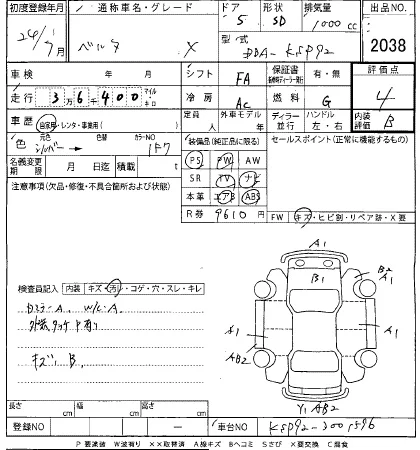 初度登録年月 通称車名・グレード ドア 形状 排気量 出品NO.
24年 1月 ベルタ X 5 SD 1000cc
型式 DBA-KSP92 2038
車検 年 月 シフト FA 保証書 有・無 評価点
走行 36400 マイル キロ 冷房 AC 燃料 G 4
車歴 自家用・レンタ・事業用( ) 定員 人 外車モデル 年 ディーラー 並行 ハンドル 左・右 内装評価 B
色 元色 シルバー カラーNO 1F7 装備品(純正品に限る) セールスポイント(正常に機能するもの)
名義変更期限 月 日迄 積載 t PS PW AW
注意事項(欠品・修復・不具合箇所および状態) SR TV ナビ
本革 エアB ABS
R券 9610円 FW キズ・ヒビ割・リペア跡・X要
A1
B1 B2 A1
検査員記入 内装 キズ・汚・コゲ・穴・スレ・キレ
A1 A1
AB2
キズ、B
Y1 AB2
長さ cm 幅 cm 高さ cm
登録NO ー 車台NO KSP92-
P要塗装 W波有り XX取替済 A線キズ Bヘコミ Sさび X要交換 C腐食